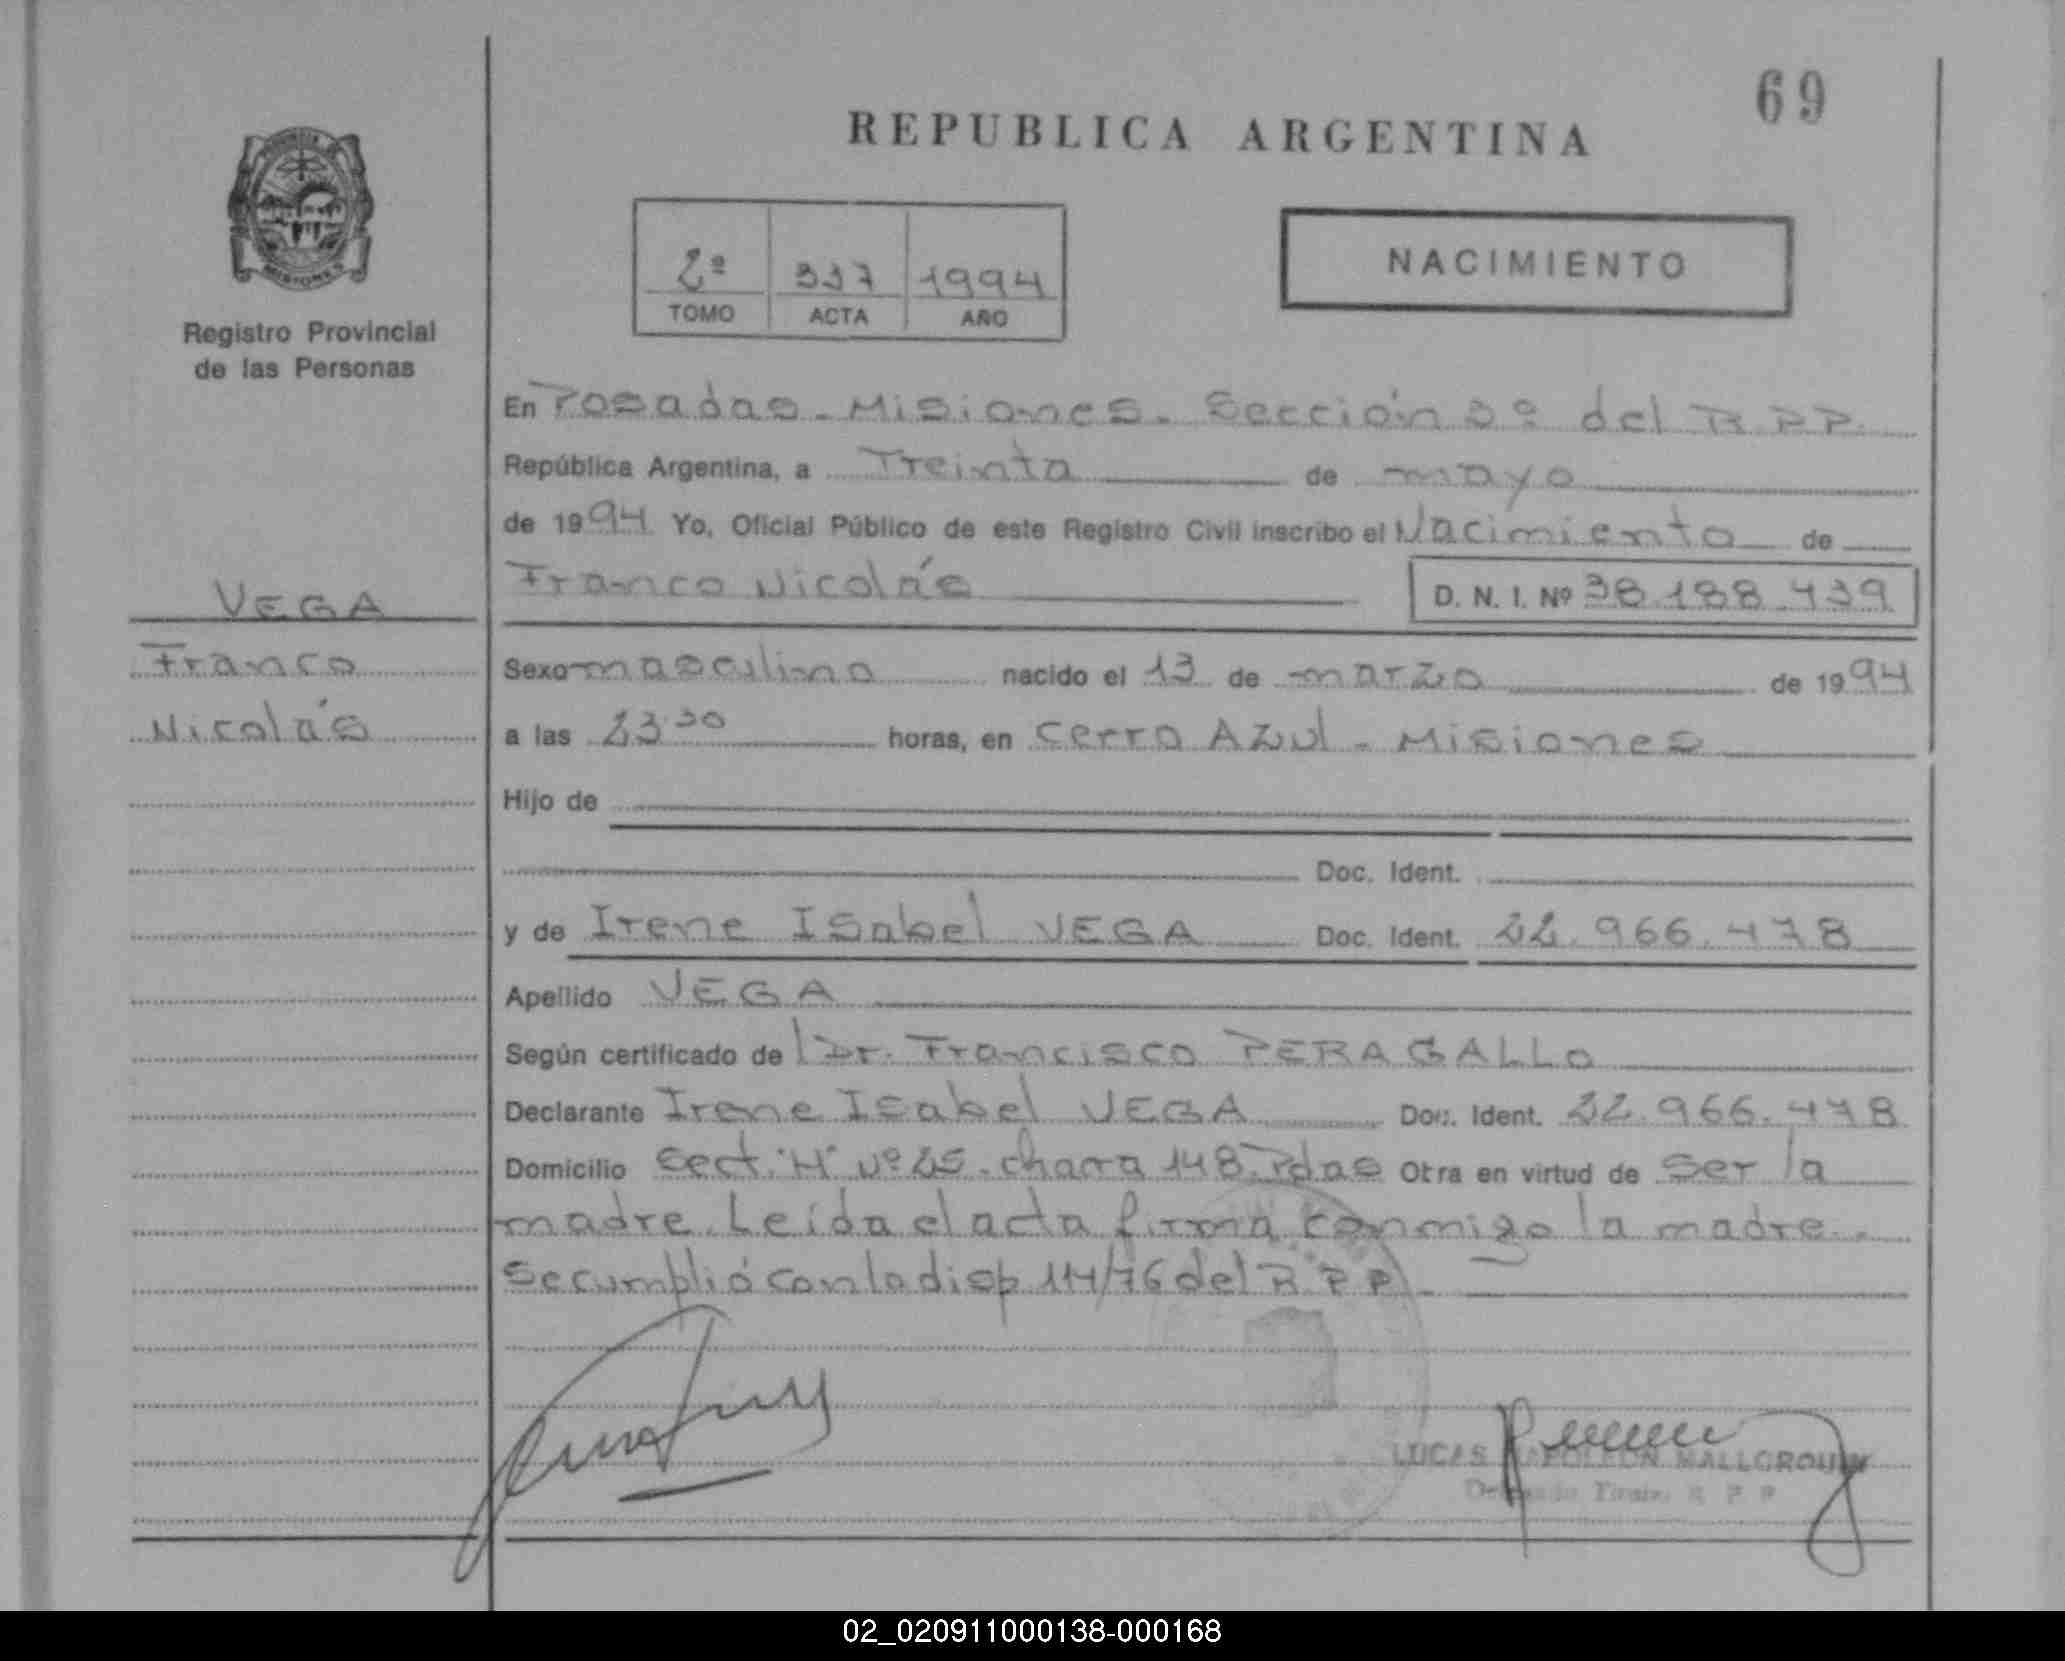 69
REPUBLICA ARGENTINA
PROVINCIA DE
MISIONES
Registro Provincial
de las Personas
2º 337 1994
TOMO ACTA AÑO
NACIMIENTO
En Posadas - Misiones. Sección 3º del R.P.P.
República Argentina, a Treinta de mayo
de 1994 Yo, Oficial Público de este Registro Civil inscribo el Nacimiento de
Franco Nicolás D. N. I. Nº 38.188.439
VEGA
Franco
Nicolás
Sexo masculino nacido el 13 de marzo de 1994
a las 23:30 horas, en Cerro Azul - Misiones
Hijo de
Doc. Ident.
y de Irene Isabel VEGA Doc. Ident. 22.966.478
Apellido VEGA
Según certificado de l Dr. Francisco PERAGALLO
Declarante Irene Isabel VEGA Doc. Ident. 22.966.478
Domicilio Sect. "H" Nº 25 - chacra 148. Pdas Otra en virtud de ser la
madre. Leída el acta firma conmigo la madre.
Se cumplió con la disp 114/76 del R.P.P.
LUCAS NAPOLEON
Titular R P P
02_020911000138-000168